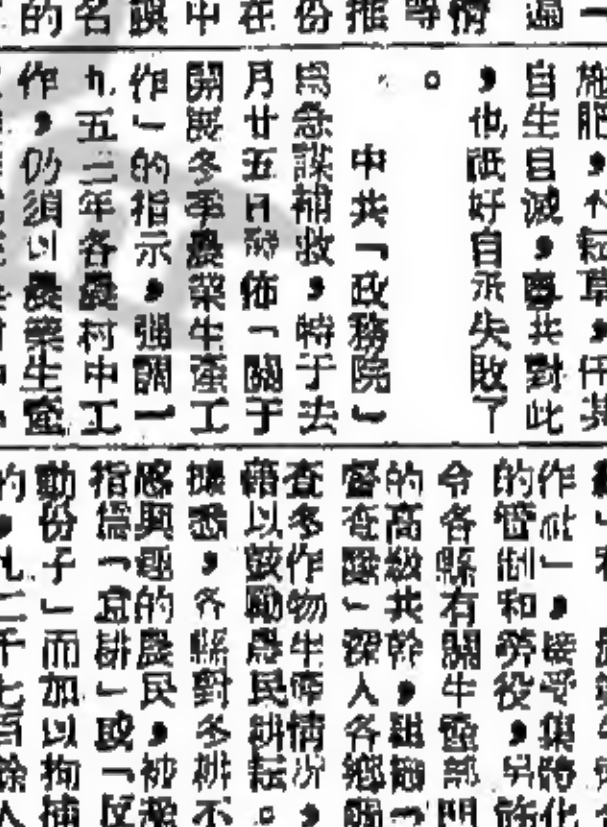 遍
情
等
推
份
在
中
誤
名
的
施肥，不耘草，任其
自生自滅，粵共對此
，也祇好自承失敗了
。
中共「政務院」
爲急謀補救，特于去
月廿五日頒佈「關于
開展冬季農業生產工
作」的指示，强調一
九五三年各農村中工
作，仍須以農業生產
作社」，接受集體化
的管制和勞役，另飭
令各縣有關生產部門
的高級共幹，組織一
督查隊」深入各鄉
查冬作物生產情况，
藉以鼓勵農民耕耘。
據悉，各縣對冬耕不
感興趣的農民，被
指爲「怠耕」或「反
動份子」而加以拘捕
的，九二千七百餘人